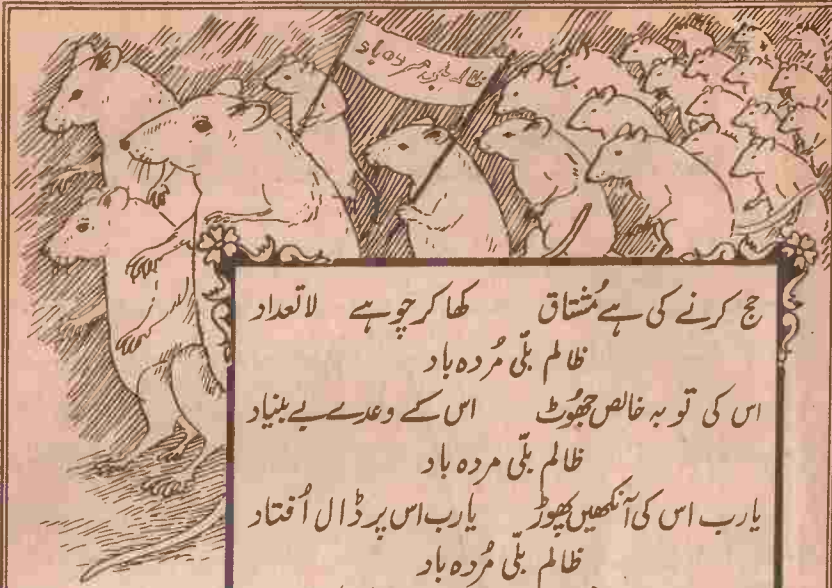 ظالم بلّی مردہ باد
حج کرنے کی ہے مُشتاق کھا کر چوہے لاتعداد
ظالم بلّی مُردہ باد
اس کی توبہ خالص جھُوٹ اس کے وعدے بے بنیاد
ظالم بلّی مردہ باد
یارب اس کی آنکھیں پھوڑ یارب اس پر ڈال اُفتاد
ظالم بلّی مُردہ باد